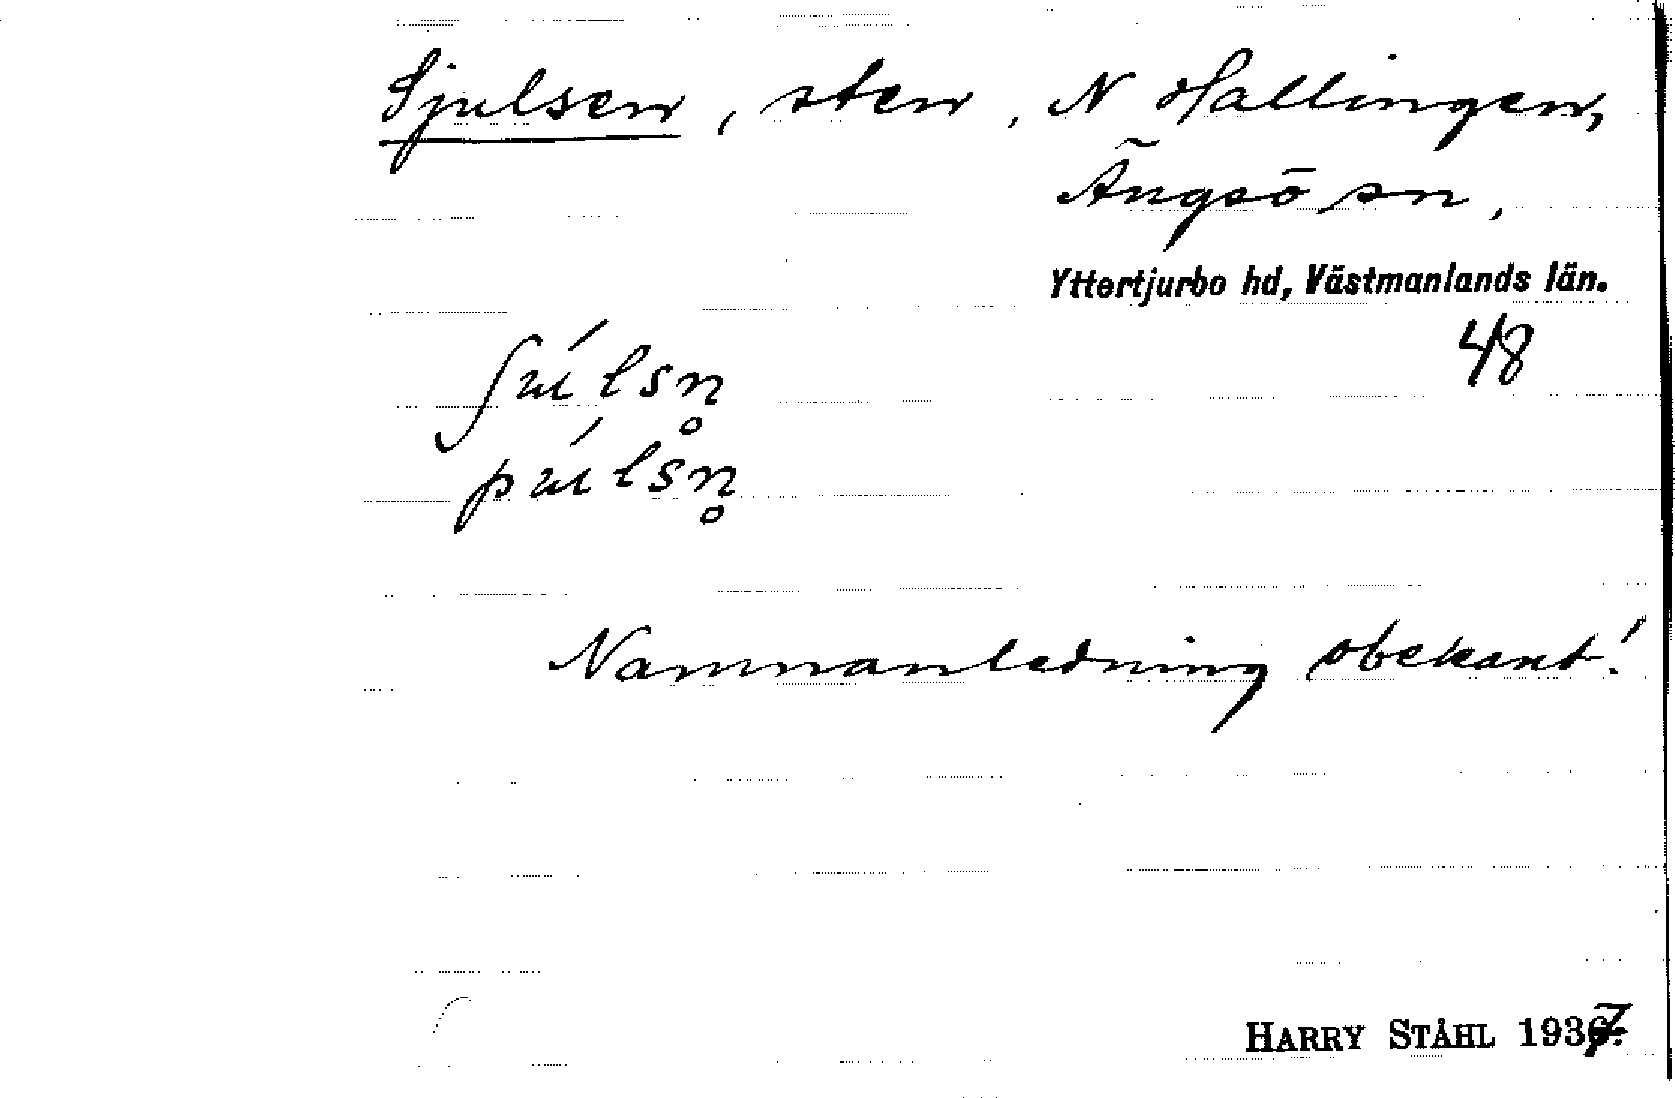 Sjulsen, sten, N Hallingen,
Ängsö sn,
Yttertjurbo hd, Västmanlands län.
48
ʃúlsn̥
púlsn̥
Namnanledning obekant!
HARRY STÅHL 1937.